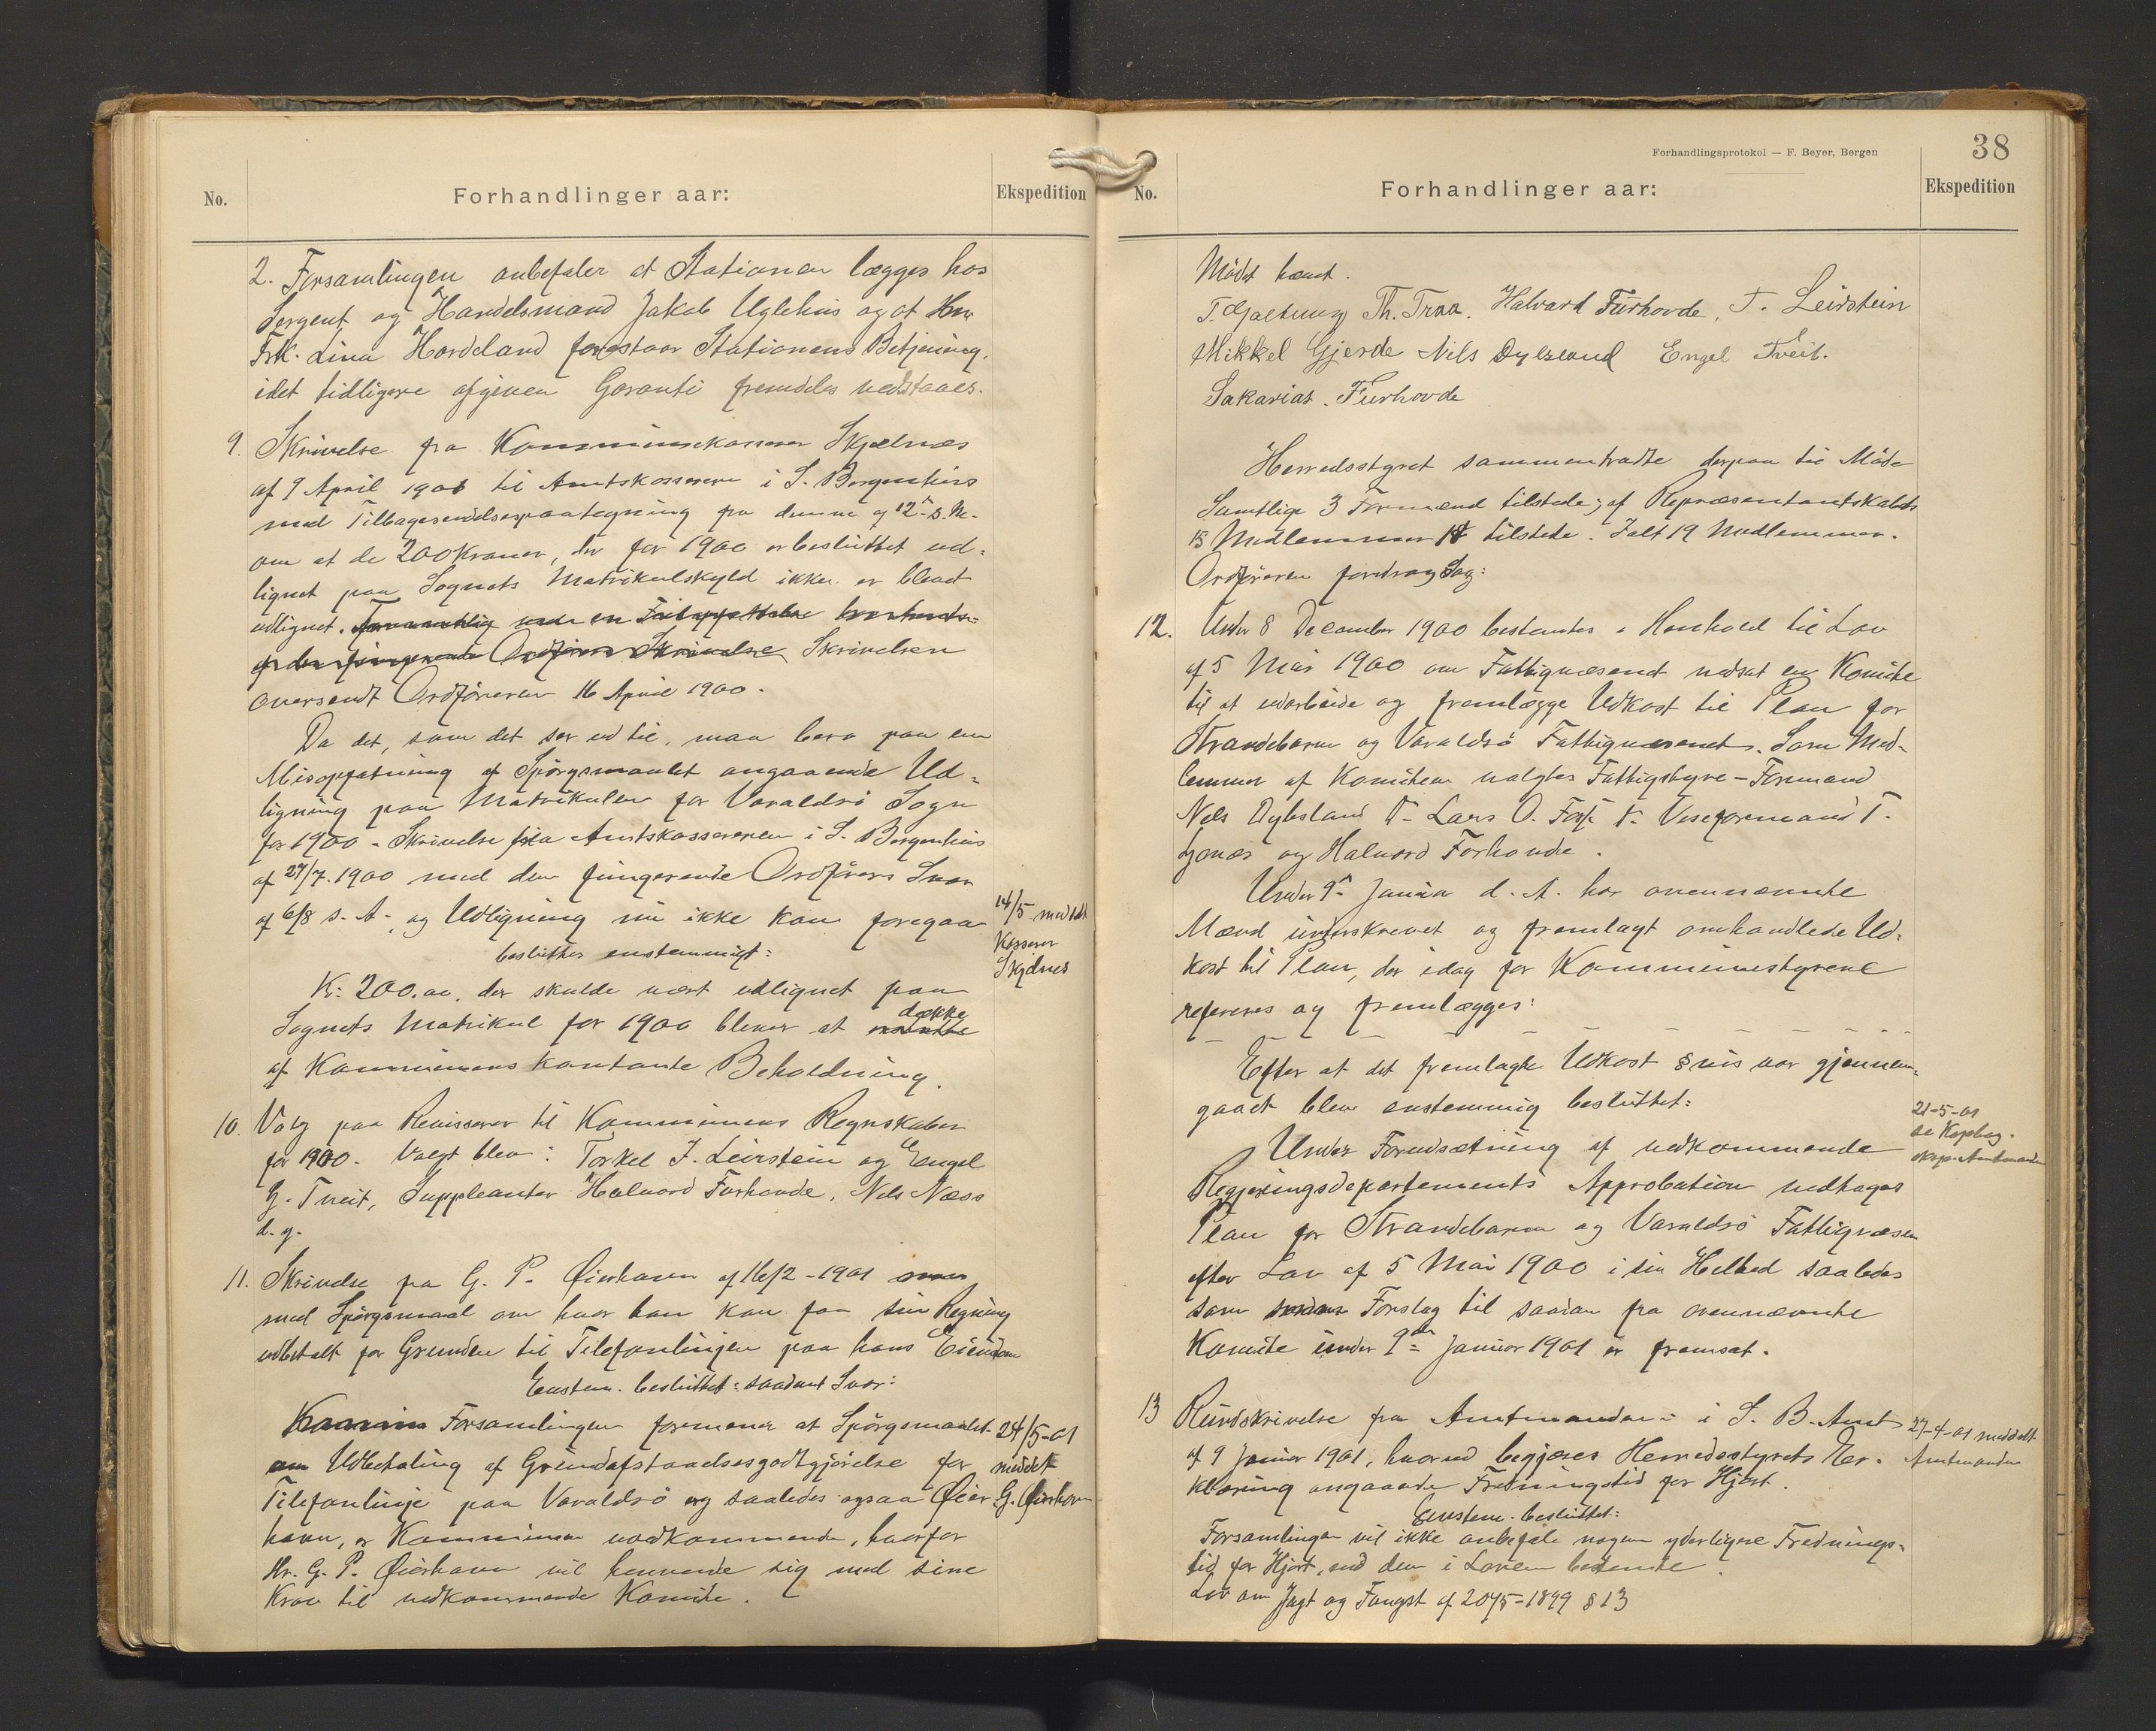 No.
Forhandlinger aar:
Ekspedition
2. Forsamlingen anbefaler at Stationen lægges hos
Sergent og Handelsmand Jakob Uglehus og at
Frk. Lina Hordeland forestaar Stationens Betjening,
idet tidligere afgiven Garanti fremdeles vedstaaes.
9. Skrivelse fra Kommunekasserer Skjelnæs
af 9 April 1901 til Amtskassereren i S. Bergenhus
med Tilbagesendelsespaategning fra denne af 12 s. M.
om at de 200 Kroner, der for 1900 er besluttet ud-
lignet paa Sognets Matrikulskyld ikke er blevet
udlignet.
Ordførers Skrivelse Skrivelsen
oversendt Ordføreren 16 April 1900.
Da det, som det ser ud til, maa bero paa en
Misopfatning af Spørgsmaalet angaaende Ud-
ligning paa Matrikulen for Varaldsö Sogn
for 1900 - Skrivelse fra Amtskassereren i S. Bergenhus
af 27/7 1900 med den fungerende Ordførers Svar
af 6/8 s. A., og Udligning nu ikke kan foregaa
besluttes enstemmigt:
14/5 meddelt
Kasserer
Skjelnes
Kr. 200.00, der skulde vært udlignet paa
Sognets Matrikul for 1900 bliver at dække
af Kommunens kontante Beholdning.
10. Valg paa Revisorer til Kommunens Regnskaber
for 1900. Valgt blev: Torkel J. Leirstein og Engel
G. Tveit, Suppleanter Halvard Furhovde, Nils Næss
d. y.
11. Skrivelse fra G. P. Øierhavn af 16/2-1901
med Spørgsmaal om hvor han kan faa sin Regning
udbetalt for Grunden til Telefonlinjen paa hans Eiendom
Enstem. besluttet: saadant Svar:
Forsamlingen formener at Spørgsmaalet
om Udbetaling af Grundafstaaelsesgodtgjörelse for
Telefonlinje paa Varaldsö og saaledes ogsaa Øier-
havn, er Kommunen uvedkommende, hvorfor
Hr. G. P. Øierhavn vil henvende sig med sine
Krav til vedkommende Komite.
24/5-01
meddelt
G. Øierhavn
Forhandlingsprotokol — F. Beyer, Bergen
38
No.
Forhandlinger aar:
Ekspedition
Mödet hævet.
T. Gjøtung Th. Traa. Halvard Furhovde, T. Leirstein
Mikkel Gjerde Nils Dybsland Engel Tveit.
Sakarias Furhovde
Herredsstyret sammentraadte derpaa til Möde
Samtlige 3 Formænd tilstede; af Repræsentantskabets
Medlemmer tilstede. Ialt 19 Medlemmer.
Ordføreren foredrog Sag:
12. Under 8 December 1900 bestemtes i Henhold til Lov
af 5 Mai 1900 om Fattigvæsenet nedsat en Komite
til at udarbeide og fremlægge Udkast til Plan for
Strandebarm og Varaldsö Fattigvæsenet. Som Med-
lemmer af Komiteen valgtes Fattigstyre-Formand
Nils Dybsland F- Lars O. Fosse F. Viseformand T.
Lynæs og Halvard Forhovde.
Under 9 Januar d. A. har ovennævnte
Mænd underskrevet og fremlagt omhandlede Ud-
kast til Plan, der idag for Kommunestyrene
refereres og fremlægges:
Efter at det fremlagte Udkast §vis var gjennem-
gaaet blev enstemmig besluttet:
Under Forudsætning af vedkommende
Regjeringsdepartements Approbation vedtages
Plan for Strandebarm og Varaldsö Fattigvæsen
efter Lov af 5 Mai 1900 i sin Helhed saaledes
som Forslag til saadan fra ovennævnte
Komite under 9de Januar 1901 er fremsat.
21-5-01
se Kopbog.
eksp. Amtmanden
13 Rundskrivelse fra Amtmanden i S. B. Amt
af 9 Januar 1901, hvorved begjæres Herredsstyrets Er-
klæring angaaende Fredningstid for Hjort.
Enstem. besluttet:
Forsamlingen vil ikke anbefale nogen yderligere Frednings-
tid for Hjort, end den i Loven bestemte.
Lov om Jagt og Fangst af 20/5-1899 § 13
27-4-01 meddelt
Amtmanden